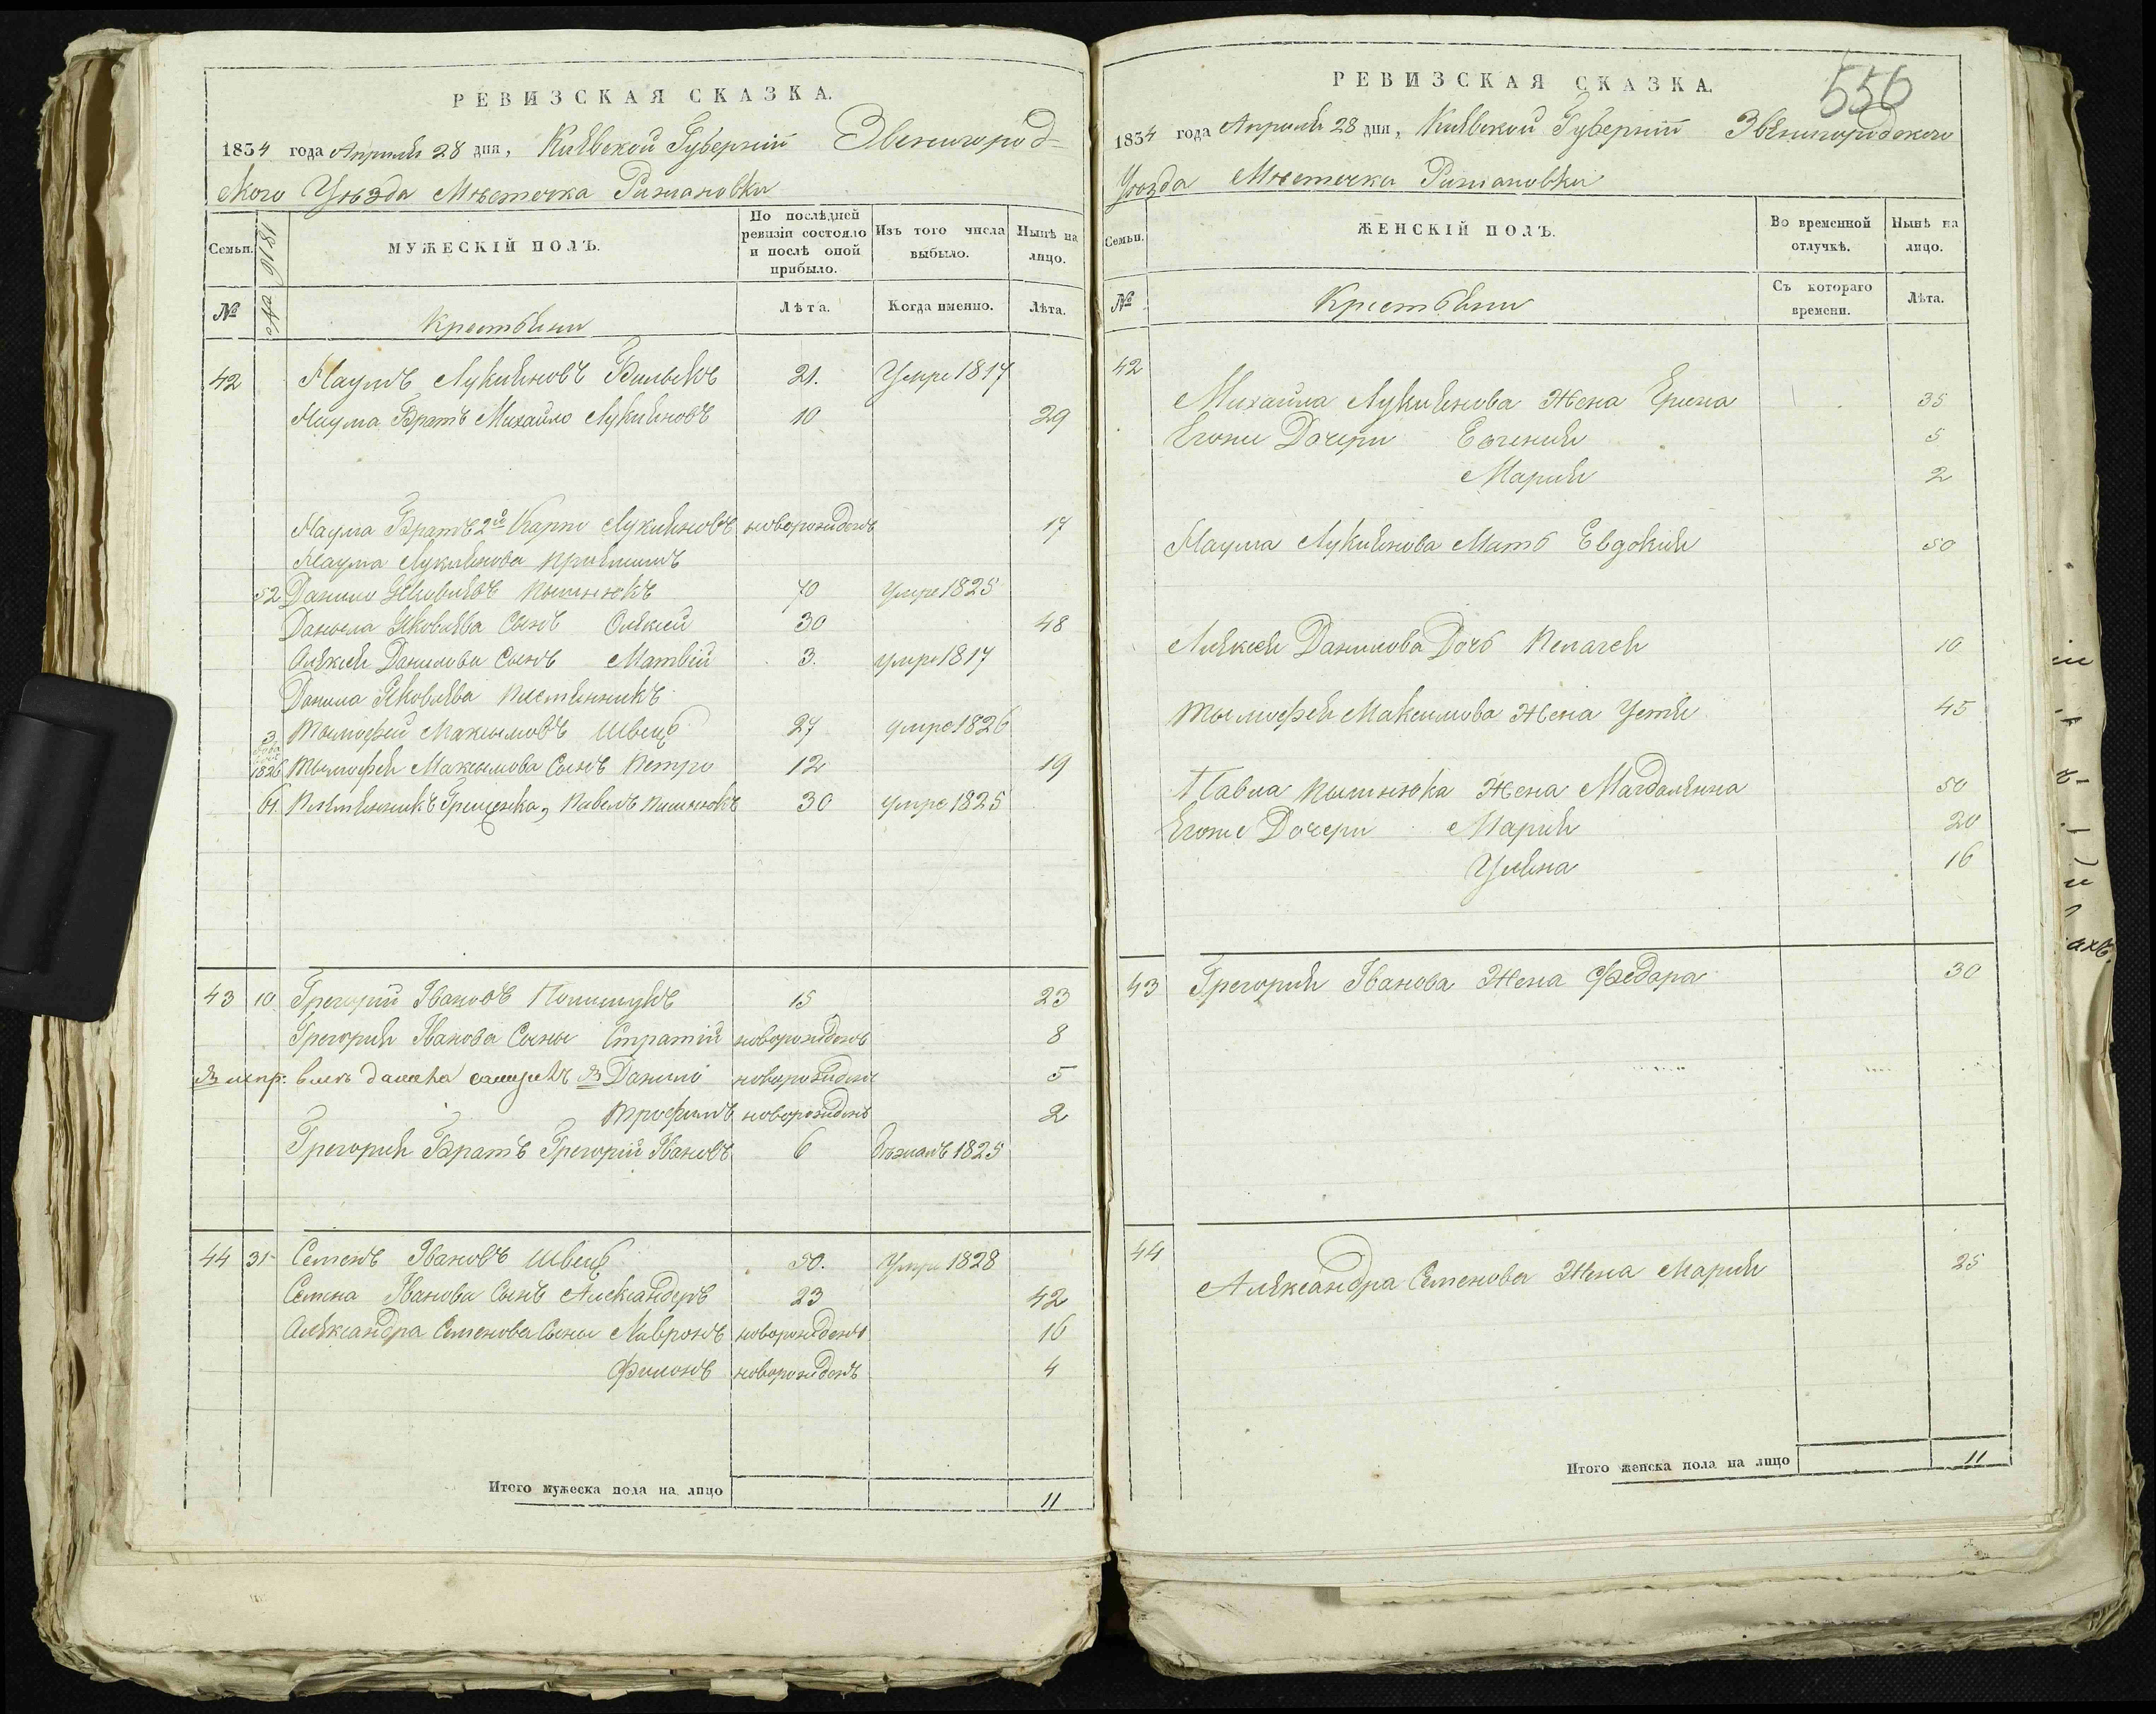 РЕВИЗСКАЯ СКАЗКА.
1834 года Апреля 28 дня, Кіевской Губерніи Звенигород-
ского Уѣзда Мѣстечка Рижановки
Семьи. 1816 МУЖЕСКІЙ ПОЛЪ. По послѣдней ревизіи состояло и послѣ оной прибыло. Изъ того числа выбыло. Нынѣ на лицо.
№ Крестьяни Лѣта. Когда именно. Лѣта.
42 Наумъ Лукияновъ 21. Умре 1817
Наума Братъ Михайло Лукияновъ 10 29
Наума Братъ 2й Карпо Лукияновъ новорожденъ 17
Наума Лукиянова
52 Данило Яковлѣвъ 70 Умре 1825
Даныла Яковлѣва Сынъ Олѣксей 30 48
Олѣксея Данилова Сынъ Матвѣй 3. умре 1817
Данила Яковлѣва племѣнникъ
3 Тымофей Максымовъ Швець 27 умре 1826
1826 Тымофея Максымова Сынъ Петро 12 19
61 Племѣнникъ Грищенка, Павелъ 30 умре 1825
43 10 Грегорій Івановъ 15 23
Грегорія Іванова Сыны Стратій новорожденъ 8
Данило новорожденъ 5
Трофимъ новорожденъ 2
Грегорія Братъ Грегорій Івановъ 6 бѣжалъ 1825
44 31 Семенъ Івановъ Швець 50. Умре 1828
Семена Іванова Сынъ Александеръ 23 42
Олѣксандра Семенова Сыны Лавронъ новорожденъ 16
Филонъ новорожденъ 4
Итого мужеска пола на лицо 11
556
РЕВИЗСКАЯ СКАЗКА.
1834 года Апреля 28 дня, Кіевской Губерніи Звѣнигородского
Уѣзда Мѣстечка Рижановки
Семьи. ЖЕНСКІЙ ПОЛЪ. Во временной отлучкѣ. Нынѣ на лицо.
№ Крестьяни Съ котораго времени. Лѣта.
42
Михайла Лукиянова Жена Ирина 35
Егоже Дочери Евгения 5
Мария 2
Наума Лукиянова Мать Евдокия 50
Алѣксея Данилова Дочь Пелагея 10
Тымофея Максимова Жена Устя 45
Павла Жена Магдалѣна 50
Егоже Дочери Мария 20
Улѣна 16
43 Грегория Іванова Жена Федора 30
44
Алѣксандра Семенова Жена Мария 25
Итого женска пола на лицо 11